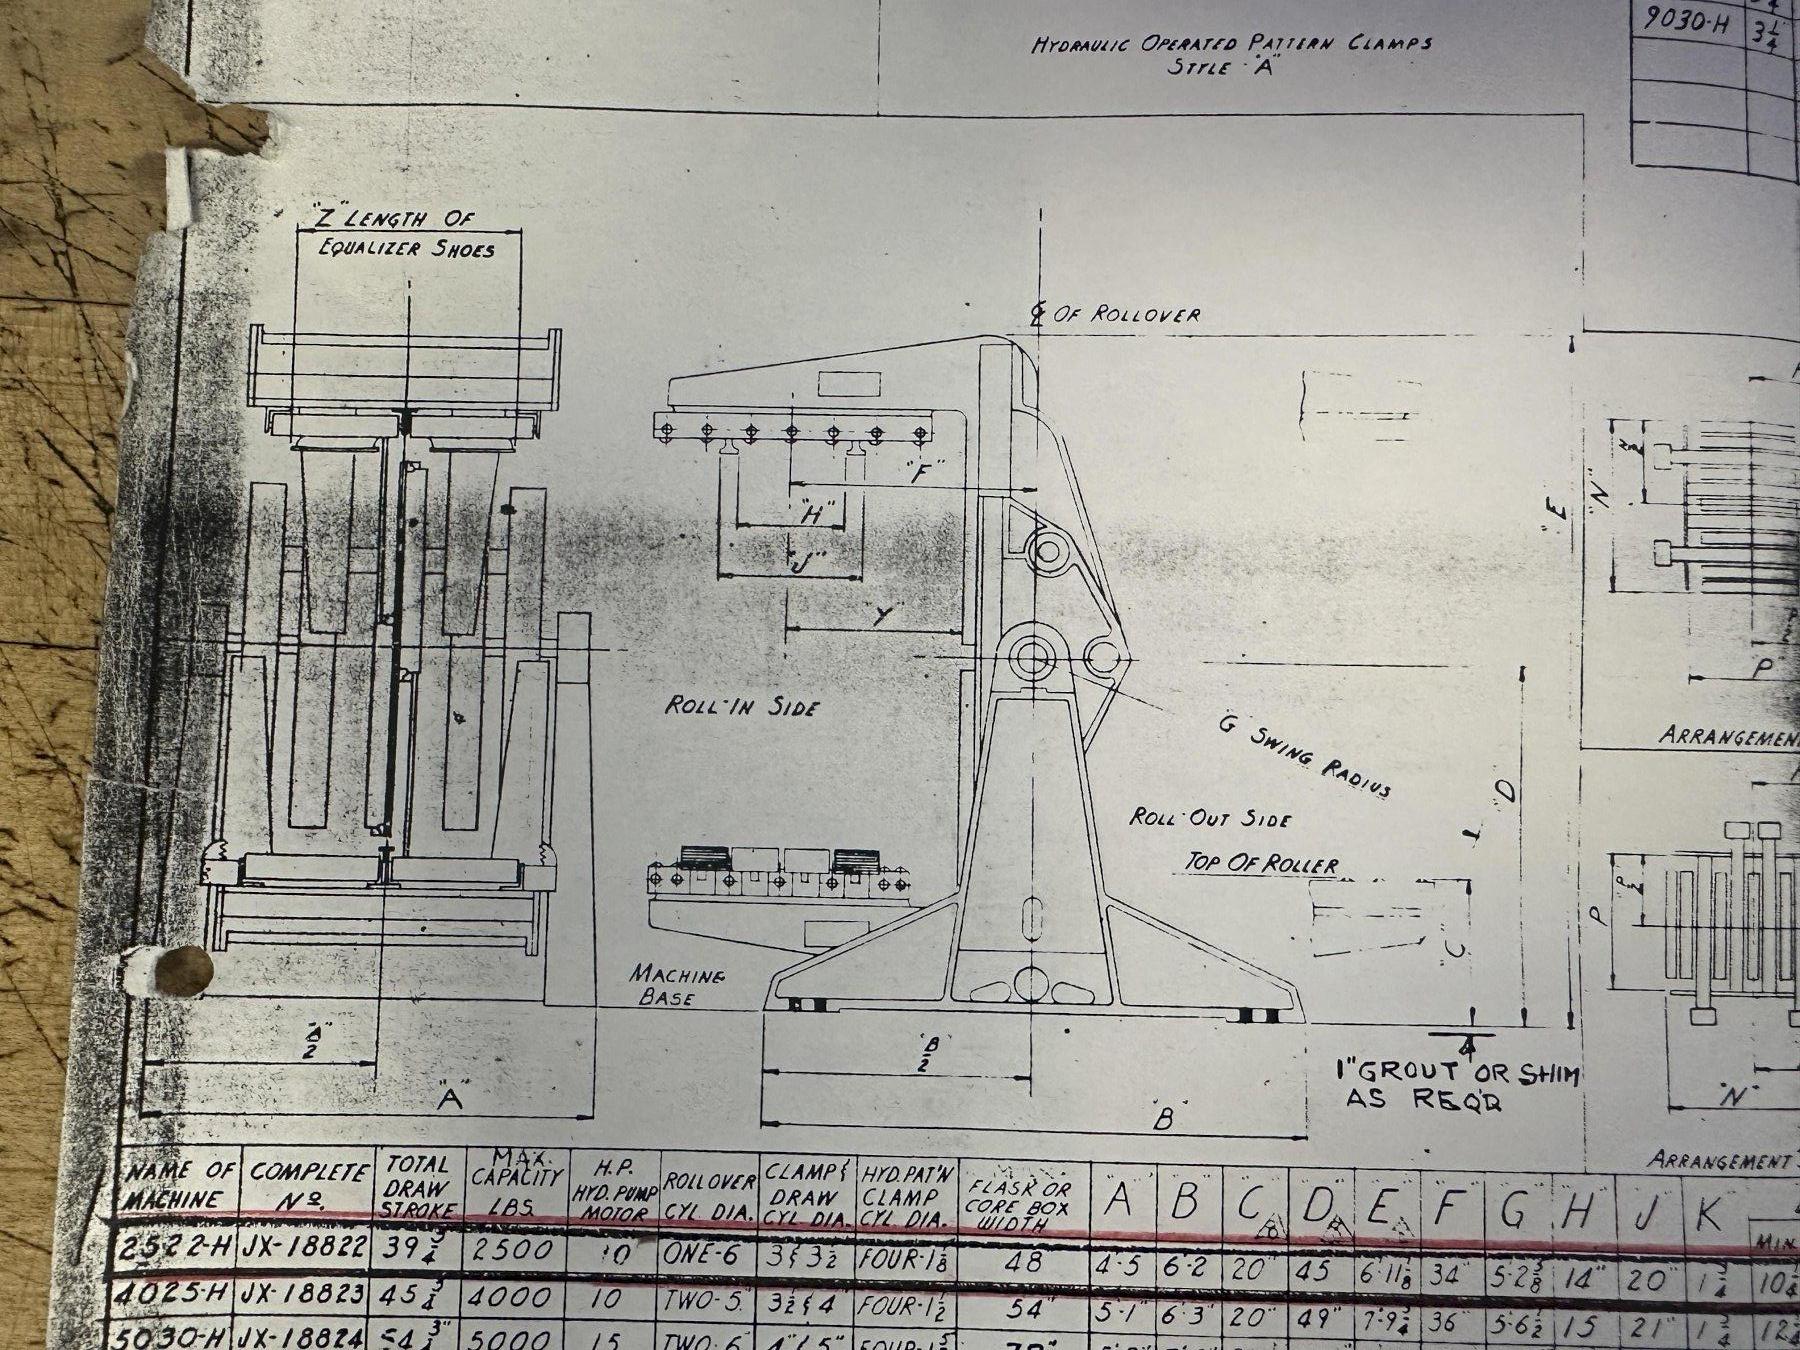 HYDRAULIC OPERATED PATTERN CLAMPS
STYLE "A"
9030-H 3 1/4
"Z" LENGTH OF
EQUALIZER SHOES
℄ OF ROLLOVER
"F"
"H"
"J"
"Y"
"E"
"N"
N/2
P
ROLL-IN SIDE
G SWING RADIUS
"D"
ROLL-OUT SIDE
TOP OF ROLLER
"C"
ARRANGEMEN
P/2
P
MACHINE
BASE
"A"/2
"B"/2
1" GROUT OR SHIM
AS REQ'D
"A"
"B"
"N"
ARRANGEMENT
NAME OF MACHINE COMPLETE Nº. TOTAL DRAW STROKE MAX. CAPACITY LBS. H.P. HYD. PUMP MOTOR ROLLOVER CYL. DIA. CLAMP & DRAW CYL. DIA. HYD. PAT'N CLAMP CYL. DIA. MAX. FLASK OR CORE BOX WIDTH "A" "B" "C" "D" "E" "F" "G" "H" "J" "K" MIN.
2522-H JX-18822 39 3/4 2500 10 ONE-6 3 & 3 1/2 FOUR-1 1/8 48 4-5 6-2 20" 45 6-11 1/8 34" 5-2 5/8 14" 20" 1 3/4 10 1/4
4025-H JX-18823 45 3/4 4000 10 TWO-5" 3 1/2 & 4" FOUR-1 1/2 54" 5-1" 6-3" 20" 49" 7-9 3/4 36" 5-6 1/2 15 21" 1 3/4 12
5030-H JX-18824 54 3/4" 5000 15 TWO-6 4" & 5" FOUR-1 5/8